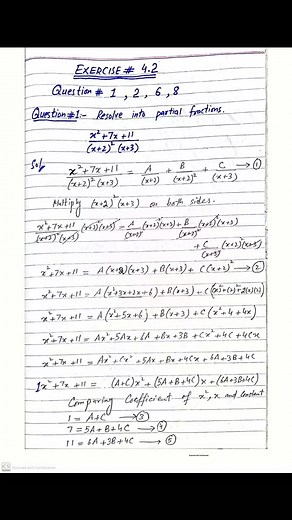 EXERCISE # 4.2
Question # 1 , 2 , 6 , 8
Question #1:- Resolve into partial fractions.
x²+7x+11
(x+2)² (x+3)
Sol
x²+7x+11 / (x+2)² (x+3) = A / (x+2) + B / (x+2)² + C / (x+3) → ①
Multiply (x+2)² (x+3) on both sides.
x²+7x+11 / (x+2)² (x+3) (x+2)² (x+3) = A / (x+2) (x+2)² (x+3) + B / (x+2)² (x+2)² (x+3)
+ C / (x+3) (x+2)² (x+3)
x²+7x+11 = A(x+2)(x+3) + B(x+3) + C(x+2)² → ②
x²+7x+11 = A(x²+3x+2x+6) + B(x+3) + C((x)²+(2)²+2(x)(2))
x²+7x+11 = A(x²+5x+6) + B(x+3) + C(x²+4+4x)
x²+7x+11 = Ax²+5Ax+6A+Bx+3B+Cx²+4C+4Cx
x²+7x+11 = Ax²+Cx²+5Ax+Bx+4Cx+6A+3B+4C
1x²+7x+11 = (A+C)x²+(5A+B+4C)x+(6A+3B+4C)
Comparing Coefficient of x², x and constant
1 = A+C → ③
7 = 5A+B+4C → ④
11 = 6A+3B+4C → ⑤